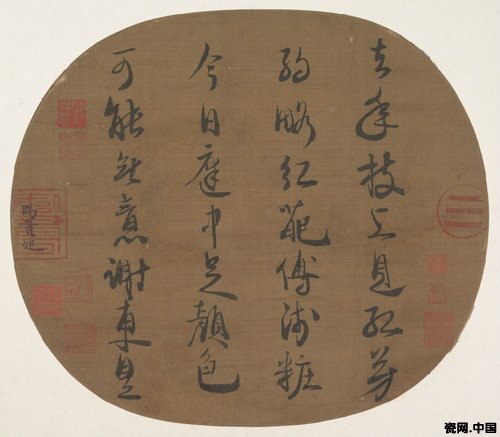 去年枝上見紅芳
約略紅葩傅淺粧
今日庭中足顏色
可能無意謝東皇
賜貴妃
瓷网.中国